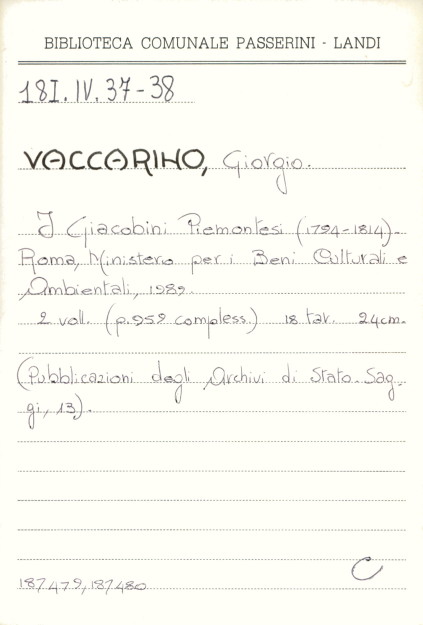 BIBLIOTECA COMUNALE PASSERINI - LANDI
18I.IV.37-38
VACCARINO, Giorgio.
I Giacobini Piemontesi (1794-1814).-
Roma, Ministero per i Beni Culturali e
Ambientali, 1989.
2 voll. (p.959 compless.) 18 tav. 24cm.
(Pubblicazioni degli Archivi di Stato. Sag-
gi, 13).
C
187479, 187480